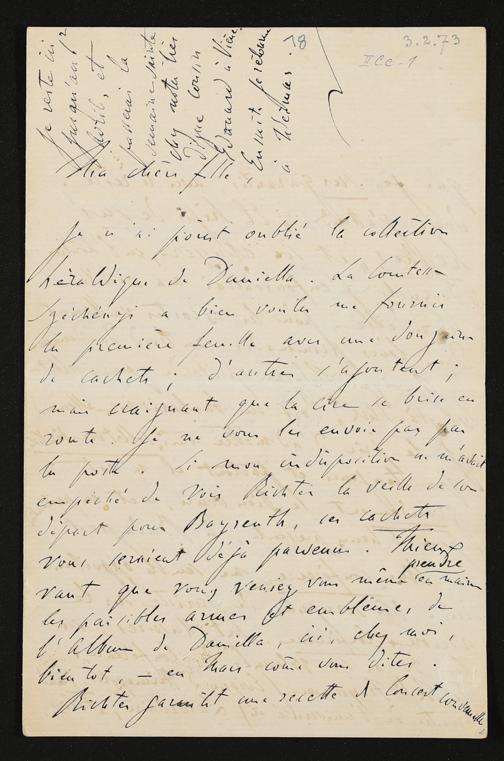 18
3.2.73
II Cc-1
Je reste ici
jusqu'au 2
Avril, et
passerai la
semaine sainte
chez notre très
digne cousin
Edouard à Vienne
Ensuite je retourne
à Weimar.
Ma chère fille,
Je n'ai point oublié la collection
héraldique de Daniella. La Comtesse
Széchényi a bien voulu me fournir
la première feuille avec une douzaine
de cachets; d'autres s'ajoutent;
mais craignant que la cire se brise en
route je ne vous les envoie pas par
la poste. Si mon indisposition ne m'avait
empêché de voir Richter la veille de son
départ pour Bayreuth, ces cachets
vous seraient déjà parvenus. Mieux
vaut que vous veniez vous même prendre en mains
les paisibles armes et emblèmes de
l'Album de Daniella, ici, chez moi,
bientot, – en Mars comme vous dites.
Richter garantit une recette de Concert convenable